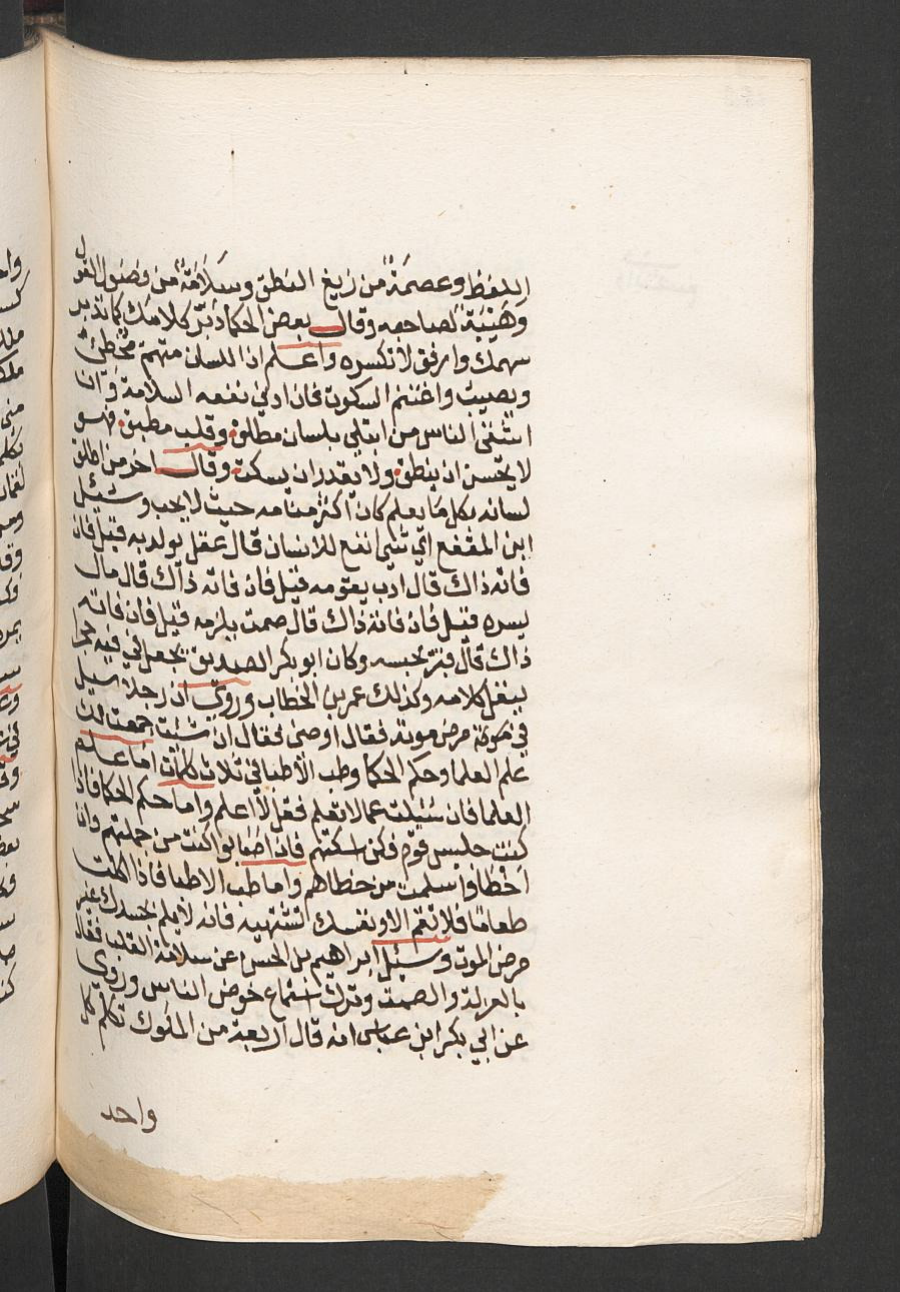 اللفظ وعصمة من زيغ النطق وسلامة من فضول القول
وهيبة لصاحبه وقال بعض الحكما دبّر كلامك كما تدبر
سهمك وارفق لا تكسره واعلم ان اللسان متهم مخطئ
ويصيب واغتنم السكوت فان ادني نفعه السلامة وّان
اشقى الناس من ابتلي بلسان مطلق وقلب مطبق فهو
لا يحسن ان ينطق ولا يقدر ان يسكت وقال اخر من اطلق
لسانه بكل ما يعلم كان اكثر مقامه حيث لا يحب وسئل
ابن المقفع اي شي انفع للانسان قال عقل يولد به قيل فان
فاته ذاك قال ادب يقومه قيل فان فاته ذاك قال مال
يستره قيل فان فاته ذاك قال صمت يلزمه قيل فان فاته
ذاك قال قبر يحبسه وكان ابو بكر الصديق يجعل في فيه حجرا
ليقل كلامه وكذلك عمر بن الخطاب وروي ان رجلا سيل
في مرض موته فقال اوصني فقال ان شئت جمعت لك
علم العلما وحكم الحكما وطب الاطبا في ثلاث كلمات اما علم
العلما فان سئيلت عما لا تعلم فقل لا اعلم واما حكم الحكما فاذا
كنت جليس قوم فكن اسكتهم فان اصابوا كنت من جملتهم وان
اخطاوا سلمت من خطاهم واما طب الاطبا فاذا اكلت
طعامًا فلا تقم الا ونفسك تشتهيه فانه لا يلم بجسدك غير
مرض الموت وسيل ابراهيم بن الحسن عن سلامة القلب فقال
بالعزلة والصمت وترك استماع خوض الناس وروي
عن ابي بكر ابن عباس انه قال اربعة من الملوك تكلم كل
واحد